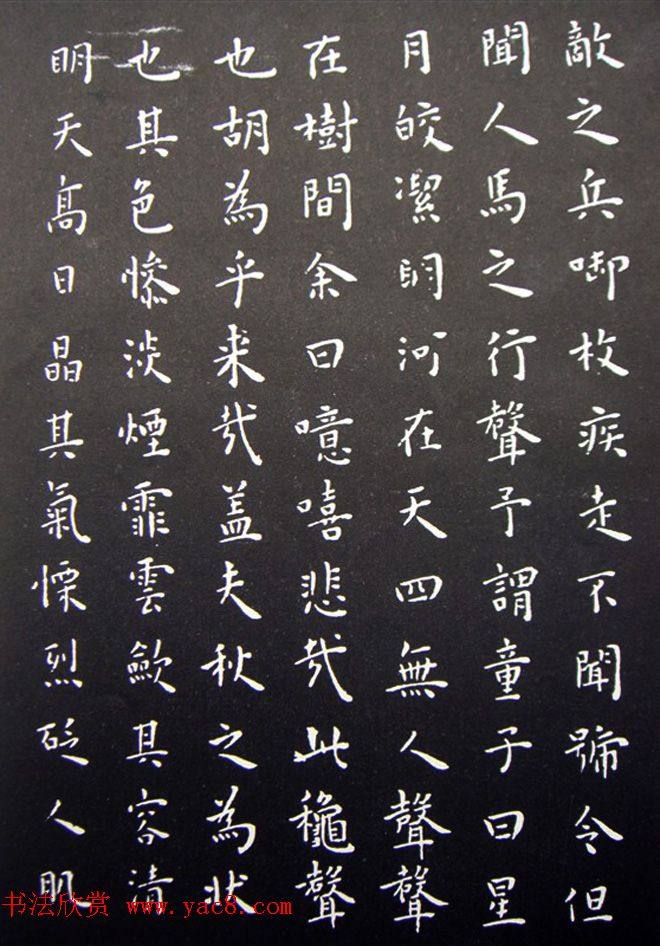 敵之兵啣枚疾走不聞號令但
聞人馬之行聲予謂童子曰星
月皎潔明河在天四無人聲聲
在樹間余曰噫嘻悲哉此穐聲
也胡為乎来哉盖夫秋之為状
也其色惨淡煙霏雲歛其容清
明天髙日晶其氣慄烈砭人肌
书法欣赏 www.yac8.com